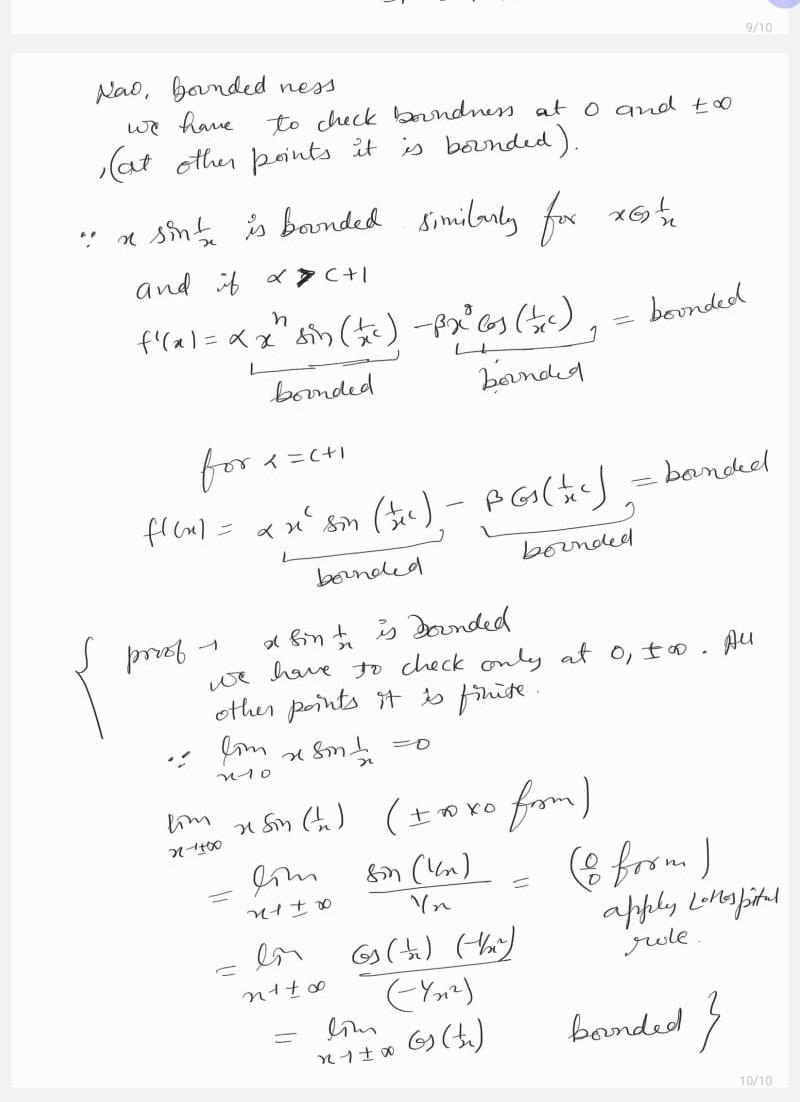 9/10
Nao, bounded ness
we have to check boundness at 0 and ±∞
,(at other points it is bounded).
∵ x sin 1/x is bounded similarly for x cos 1/x
and if α > c+1
f'(x) = α x^n sin(1/x^c) - βx^8 cos(1/x^c), = bounded
bounded bounded
for α = c+1
f'(x) = α x^c sin(1/x^c), - β cos(1/x^c), = bounded
bounded bounded
{ proof → x sin 1/x is bounded
we have to check only at 0, ±∞. All
other points it is finite.
∵ lim x→0 x sin 1/x = 0
lim x→±∞ x sin(1/x) (±∞×0 form)
= lim x→±∞ sin(1/x) / 1/x = (0/0 form)
apply L-Hospital
rule.
= lim x→±∞ cos(1/x) (-1/x²) / (-1/x²)
= lim x→±∞ cos(1/x) bounded }
10/10